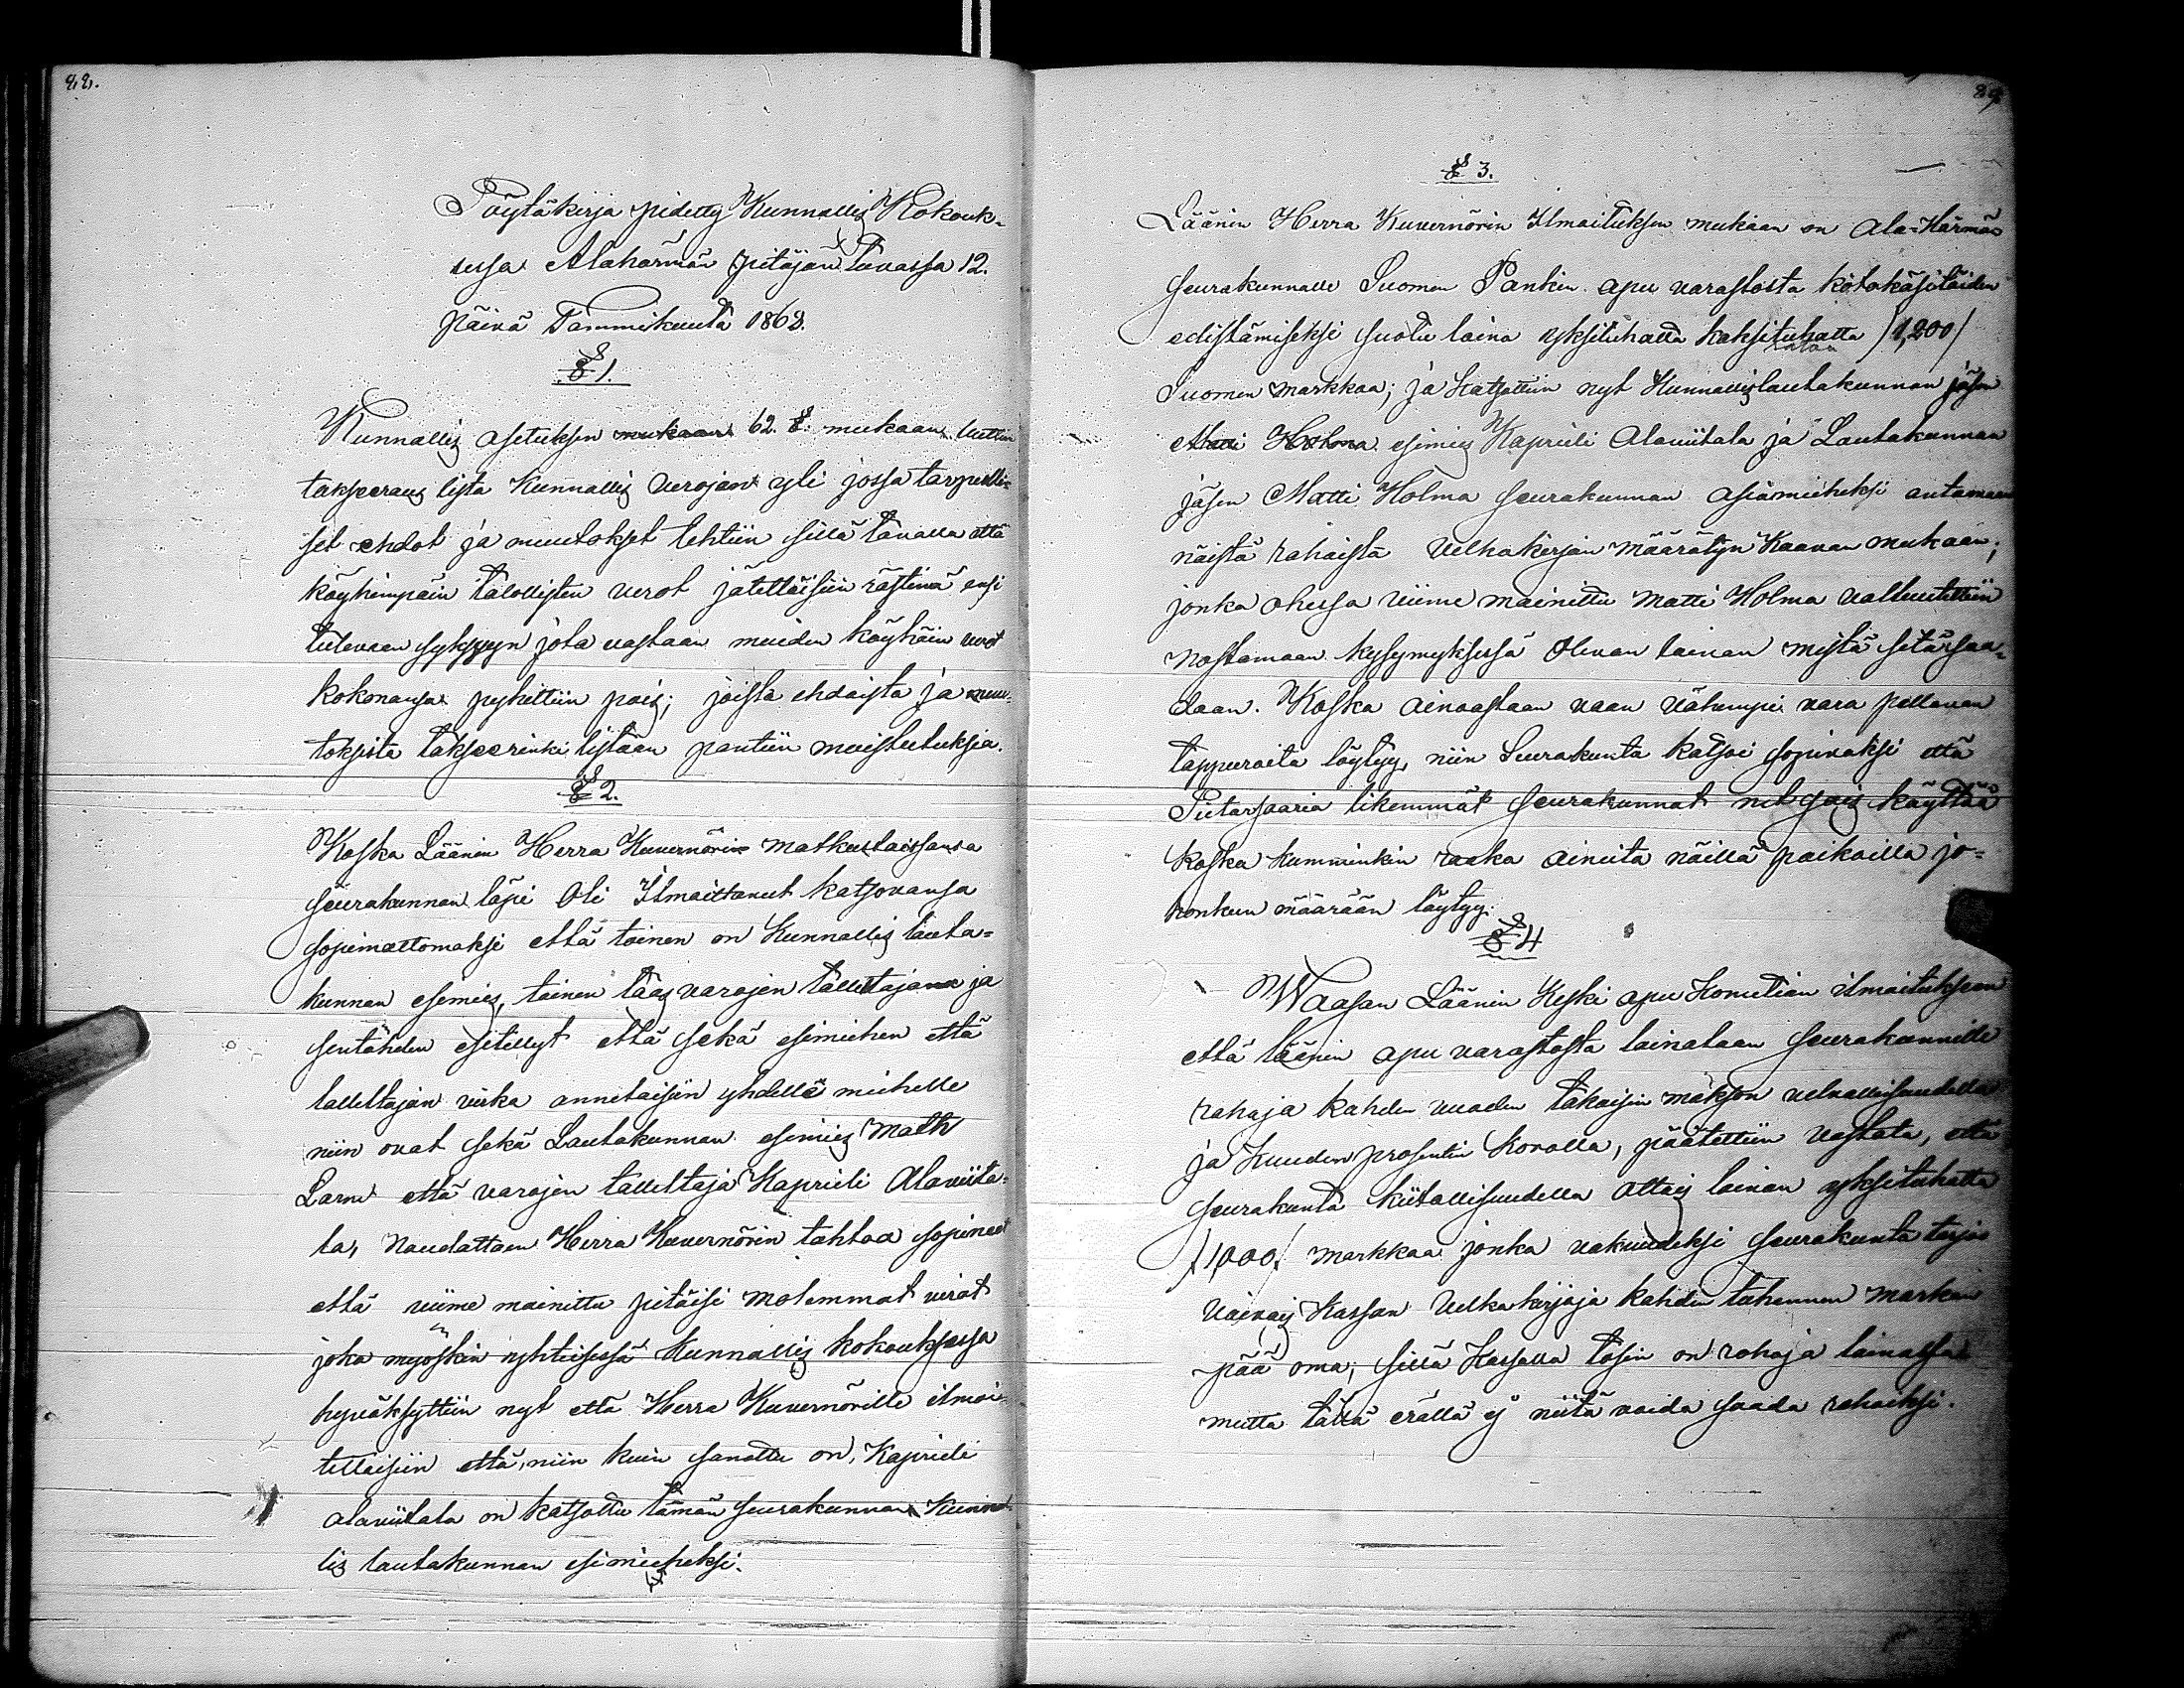 88.
Pöytäkirja pidetty Kunnallis Kokouk-
sessa Alahärmän pitäjän tuvassa 12.
päivä Tammikuuta 1868.
§ 1.
Kunnallis asetuksen mukaan 62. §. mukaan luettiin
takseeraus lista Kunnallis verojan yli jossa tarpeelli-
set ehdot ja muutokset tehtiin sillä tavalla että
köyhimpäin talollisten verot jätettäisiin rästinä ensi
tulevaan syksyyn jota vastaan muiden köyhäin verot
kokonansa pyhittiin pois; joista ehdoista ja muu-
toksista takseerinki listaan pantiin muistutuksia.
§ 2.
Koska Läänin Herra Kuvernörin matkustaissansa
seurakunnan läpi Oli Ilmoittanut katsovansa
sopimattomaksi että toinen on Kunnallis lauta-
kunnan esimies, toinen taas varojen tallettajana ja
sentähden esitellyt että sekä esimiehen että
tallettajan virka annetaisiin yhdelle miehelle
niin ovat sekä Lautakunnan esimies Matti
Larne että varojen tallettaja Kaprieli Alaviita-
la, Noudattaen Herra Kuvernörin tahtoa sopineet
että viime mainittu pitäisi molemmat virat
joka myöskin yhteisessä Kunnallis kokouksessa
hyväksyttiin nyt että Herra Kuvernörille ilmoi-
tettaisiin että, niin kuin sanottu on, Kaprieli
Alaviitala on katsottu tämän seurakunnan Kunnal-
lis lautakunnan esimieheksi.
89
§ 3.
Läänin Herra Kuvernörin Ilmoituksen mukaan on Ala-Härmän
seurakunnalle Suomen Pankin apu varastosta kotokäsitöiden
edistämiseksi suotu laina yksituhatta kaksituhatta /1,200/
sataa
Suomen markkaa; ja katsottiin nyt Kunnallislautakunnan jäsen
Matti Holma esimies Kaprieli Alaviitala ja Lautakunnan
jäsen Matti Holma seurakunnan asiamieheksi antamaan
näistä rahoista velkakirjan määrätyn Kaavan mukaan;
jonka ohessa viime mainittu Matti Holma valtuutettiin
Nostamaan kysymyksessä Olevan lainan mistä sitä saa-
daan. Koska ainoastaan vaan vähempi vara pellavan
tappuroita löytyy, niin Seurakunta katsoi sopivaksi että
Pietarsaaria likemmät seurakunnat net sais käyttää
koska kumminkin raaka aineita näillä paikoilla jo-
honkun määrään löytyy.
§ 4
Waasan Läänin Keski apu Komitian ilmoituksen
että läänin apu varastosta lainataan seurakunnille
rahoja kahden vuoden takaisin makson velvollisuudella
ja Kuuden prosentin Korolla, päätettiin vastata, että
seurakunta kiitollisuudella Ottais lainan yksituhatta
/1,000/ markkaa jonka vakuudeksi seurakunta tarjoo
Vaivais Kassan Velkakirjoja kahden tuhannen markan
pää oma, sillä Kassalla tosin on rahoja lainassa
mutta tällä erällä ej niitä voida saada rahaiksi.